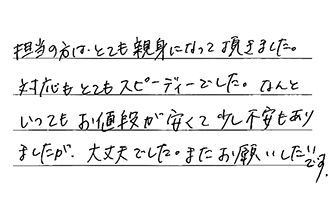 担当の方は、とても親身になって頂きました。
対応もとてもスピーディーでした。なんと
いってもお値段が安くて少し不安もあり
ましたが、大丈夫でした。またお願いしたい
です。